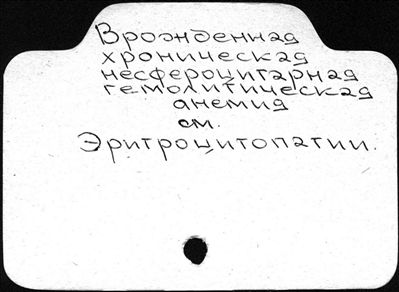 Врожденная
хроническая
несфероцитарная
гемолитическая
анемия
см.
Эритроцитопатии.